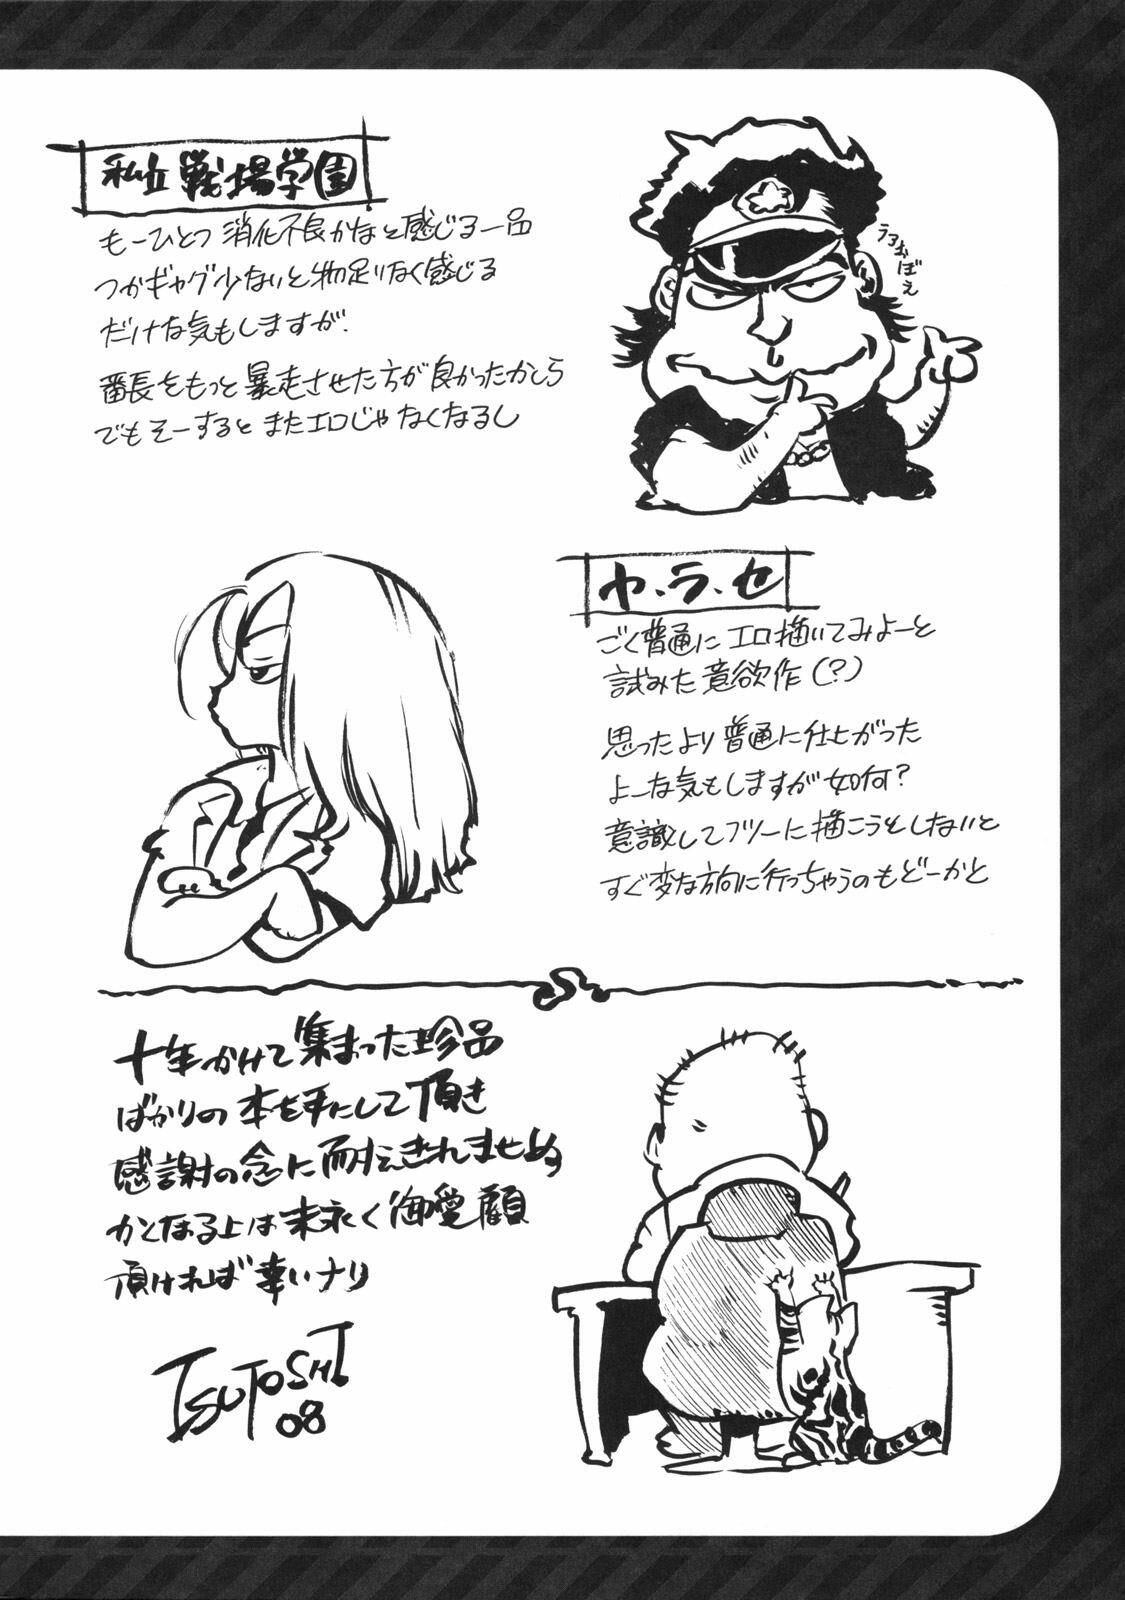 私立戦場学園
もーひとつ消化不良かなと感じる一品
つかギャグ少ないと物足りなく感じる
だけな気もしますが、
番長をもっと暴走させた方が良かったかしら
でもそーするとまたエロじゃなくなるし
うろおぼえ
ヤ・ラ・セ
ごく普通にエロ描いてみよーと
試みた意欲作(?)
思ったより普通に仕上がった
よーな気もしますが如何?
意識してフツーに描こうとしないと
すぐ変な方向に行っちゃうのもどーかと
十年かけて集まった珍品
ばかりの本を手にして頂き
感謝の念に耐えきれませぬ
かくなる上は末永く御愛顧
頂ければ幸いナリ
TSUTOSHI
08